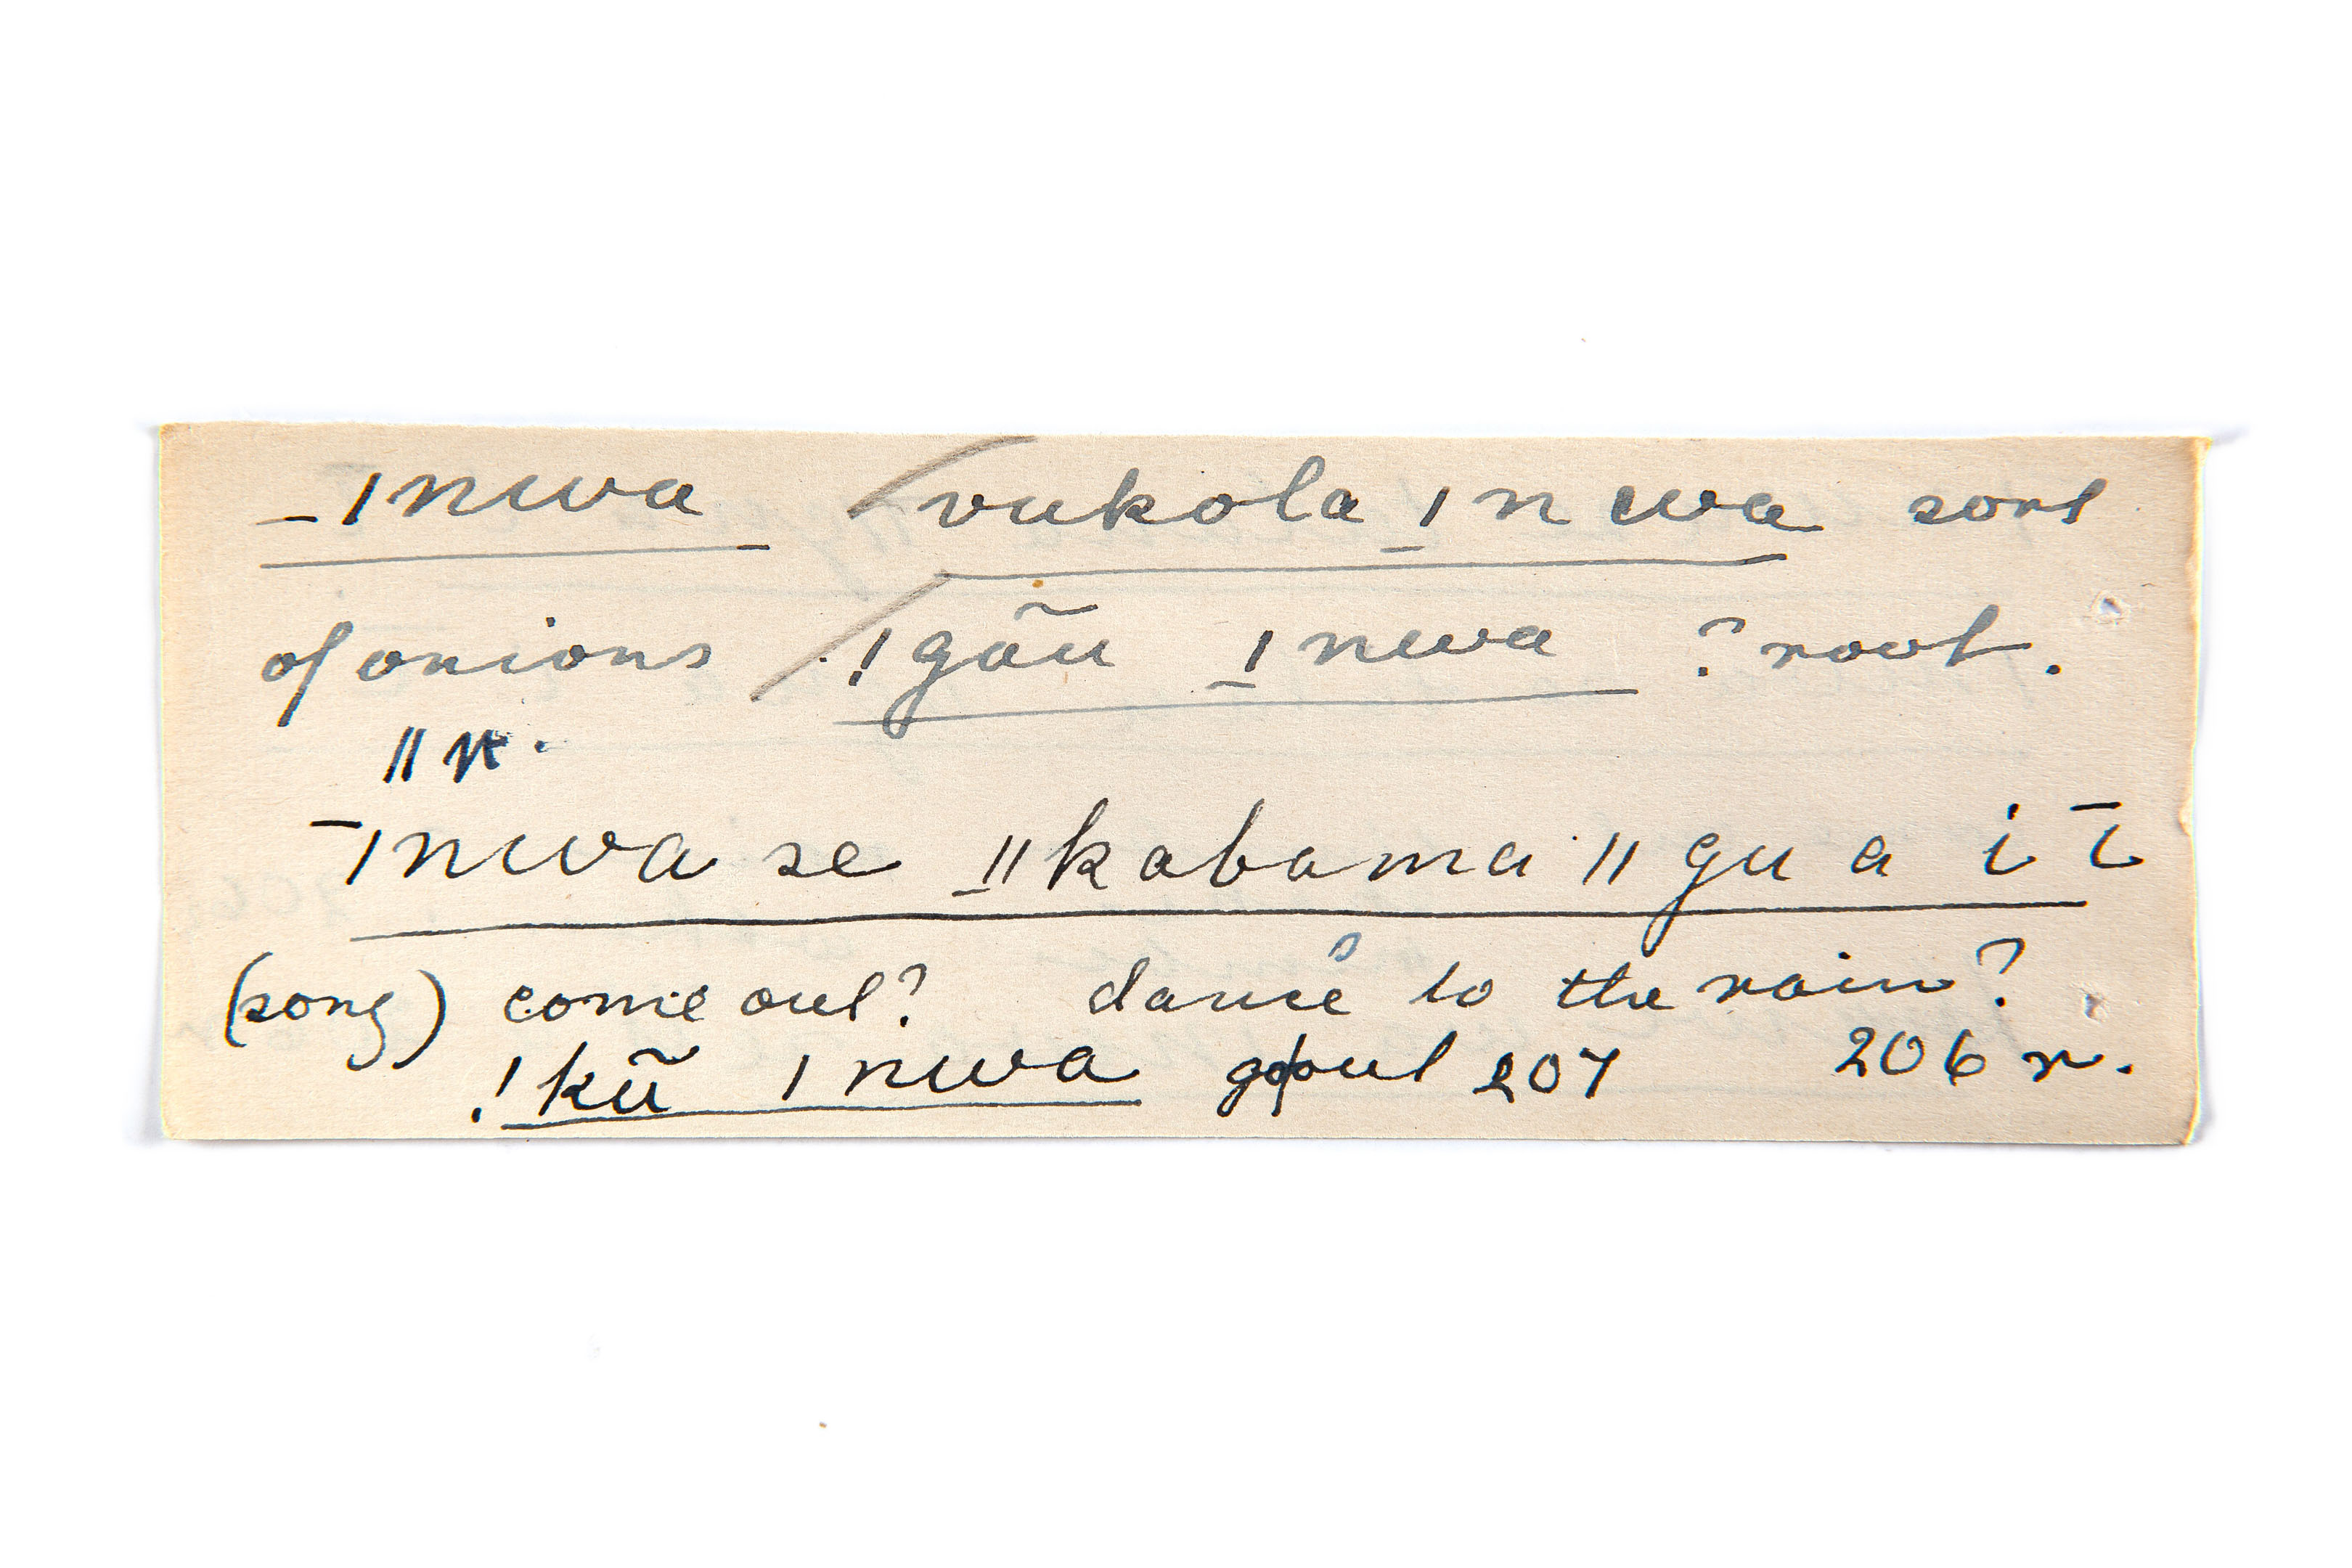 _ǀnwa / vukola_ǀnwa sort
of onions / !gãũ _ǀnwa ? root.
ǁk.
¯ǀnwa se _ǁkabama ǁgu a i ī
(song) come out? dance to the rain?
!kũ ǀnwa go out 207 206 r.